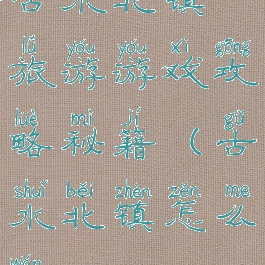 水北镇
lǚ yóu yóu xì gōng
旅游游戏攻
lüè mì jí gǔ
略秘籍（古
shuǐ běi zhèn zěn me
水北镇怎么
wán